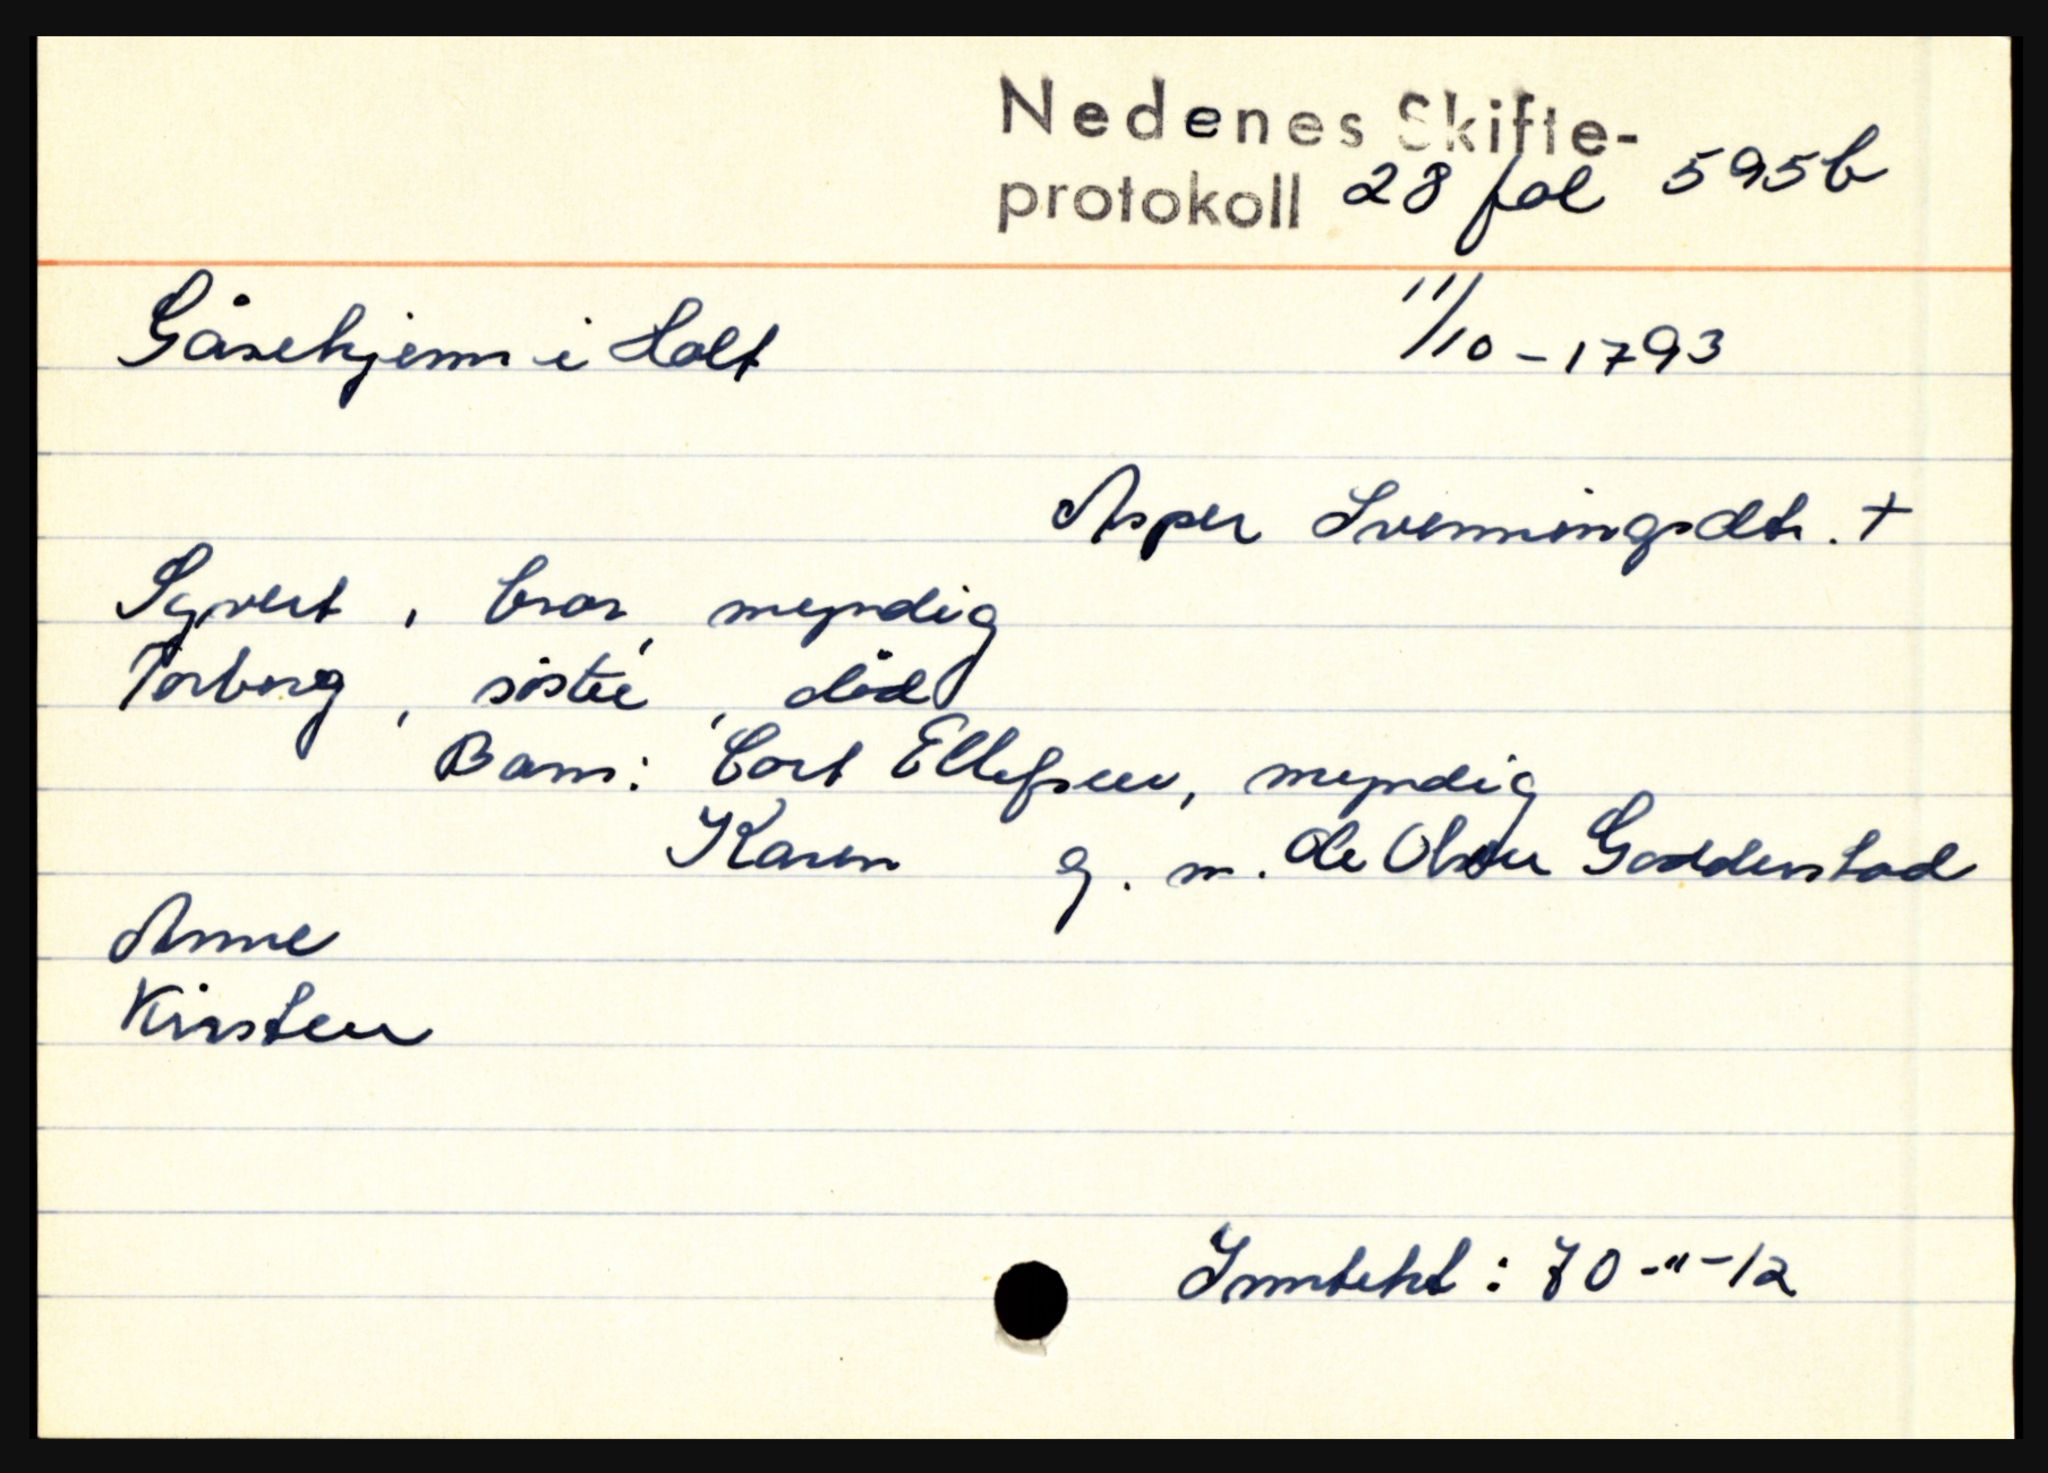 Nedenes Skifte-
protokoll 28 fol 595b
Gåsekjenn i Holt 11/10-1793
Asper Svenningsdtr. +
Syvert, bror, myndig
Torborg, söster, död
Barn: Cort Ellefsen, myndig
Karen g. m. Ole Olsen Goddenstad
Anne
Kirsten
Inntekt: 70-"-12